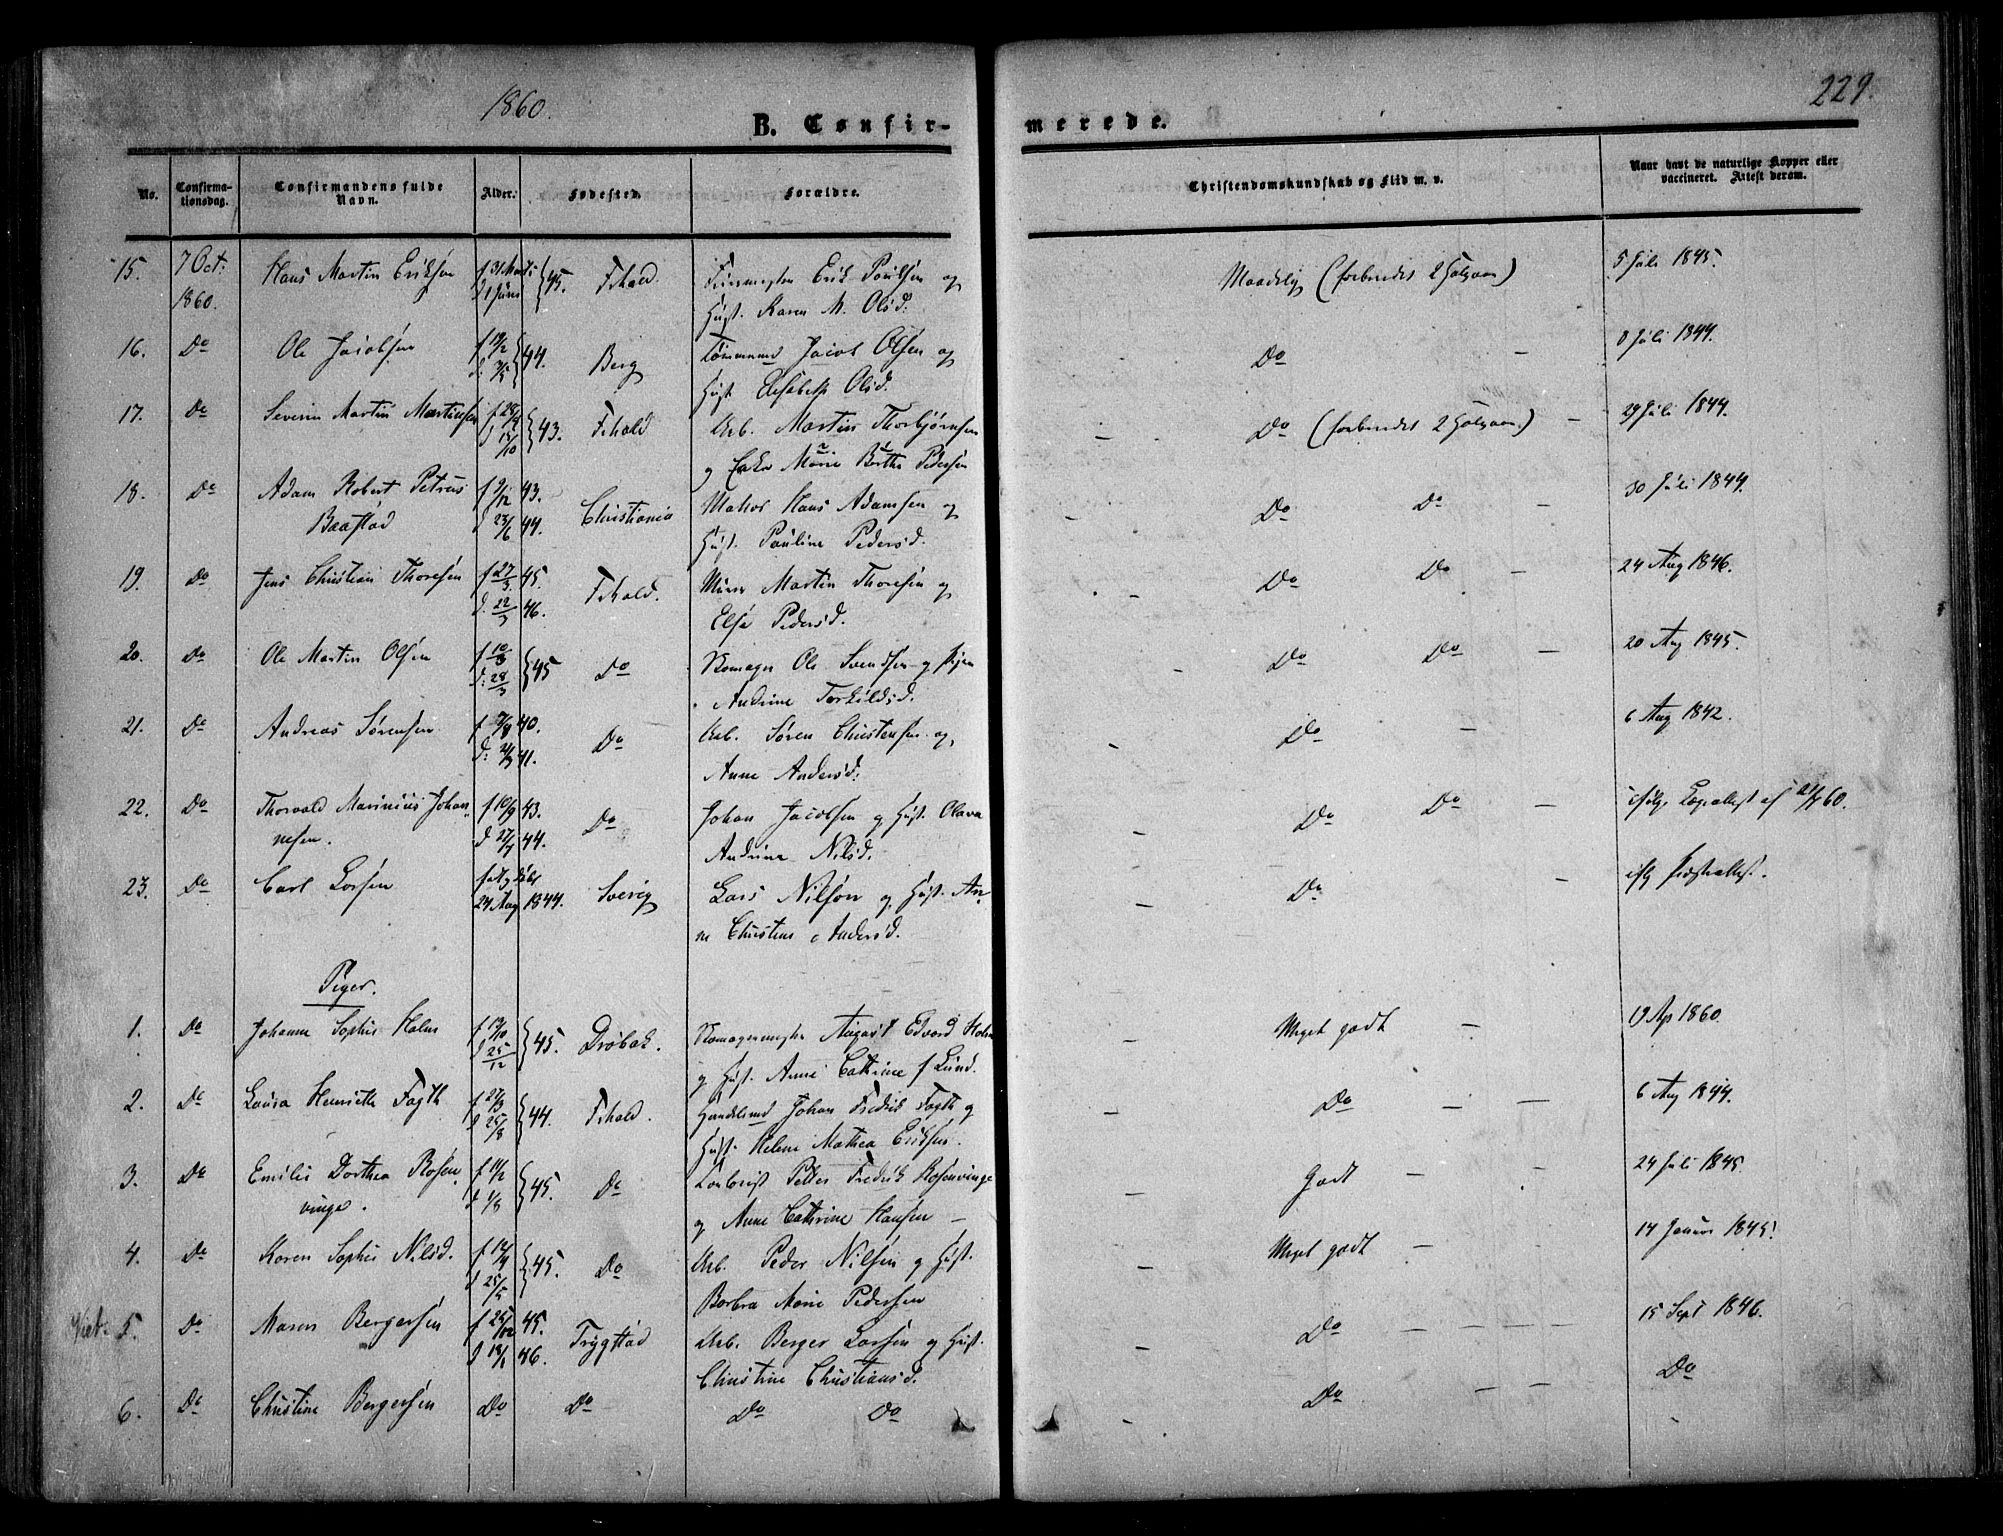 1860.
229.
B. Confir-
merede.
No.
Confirma-
tionsdag.
Confirmandens fulde
Navn.
Alder.
Fødested.
Forældre.
Christendomskundskab og Flid m. v.
Naar havt de naturlige Kopper eller
vaccineret. Attest derom.
15. 7 Oct: Hans Martin Eriksen f 31 Marts 45. Fhald. Erik Poulsen og Maadelig (forberedet 2 Halvaar) 5 Juli 1845.
1860. d 1 Juni Hust. Karen M. Olsd.
16. Do Ole Jacobsen 44. Berg Tømmermd Jacob Olsen og Do — 8 Juli 1844.
Hust. Elisabeth Olsd.
17. Do Severin Martin Martinsen 43. Fhald Arb. Martin Thorbjørnsen — Do (forberedet 2 Halvaar) — 29 Juli 1844.
og Enke Marie Berthe Pedersen
18. Do Adam Robert Petrus f 9/12 43. Christiania Hans Adamsen og — Do Do — 30 Juli 1844.
Baastad d 23/6 44. Hust. Pauline Pedersd.
19. Do Jens Christian Thoresen f 27/3 45. Fhald. Murer Martin Thoresen og — Do Do — 24 Aug 1846.
d. 22/3 46. Else Pedersd.
20. Do Ole Martin Olsen f 10/3 45 Do Skomager Ole Svendsen og Do Do — 20 Aug 1845.
d: 28/3 Andrine Torkildsd.
21. Do Andreas Sørensen 40. Do Arb. Søren Christensen og — Do — 6 Aug 1842.
41. Anne Andersd.
22. Do Thorvald Marinius Johan- f 10/9 43. Do Johan Jacobsen og Hust. Olava — Do Do — ifølge Lægeattest af 60.
nesen. d 27/7 44. Andrine Nilsd.
23. Do Carl Larsen Sverig Lars Nilson og Hust. An- — Do — iflg Præsteattest.
24 Aug 1844. ne Christine Andersd.
Piger.
1. Do Johanne Sophie Holm f 19/10 45. Drøbak. Skomagermester August Edvard Holm — Meget godt — 19 Ap 1860.
d 25/12 og Hust. Anne Cathrine f Lund.
2. Do Laura Henriette Fagth f 27/3 44. Fhald. Handelsmd Johan Fredrik Fagth og — Do — — 6 Aug 1844.
d 25/8 Hust. Helene Mathea Eriksen.
3. Do Emilie Dorthea Rosen- f 11/2 45. Do Petter Fredrik Rosenvinge — Godt — — 24 Juli 1845.
vinge. d 1/8 og Anne Cathrine Hansen —
4. Do Karen Sophie Nilsd. f 12/4 45. Do Arb. Peder Nilsen og Hust. — Meget godt — — 14 1845!
d 25/5 Barbra Marie Pedersen
5. Do Maren Bergersen f 25/12 45. Trygstad Arb. Berger Larsen og Hust. — Do — — — — 15 Sept 1846.
d 18/1 46. Christine Christiansd.
6. Do Christine Bergersen Do Do Do Do — Do — — Do